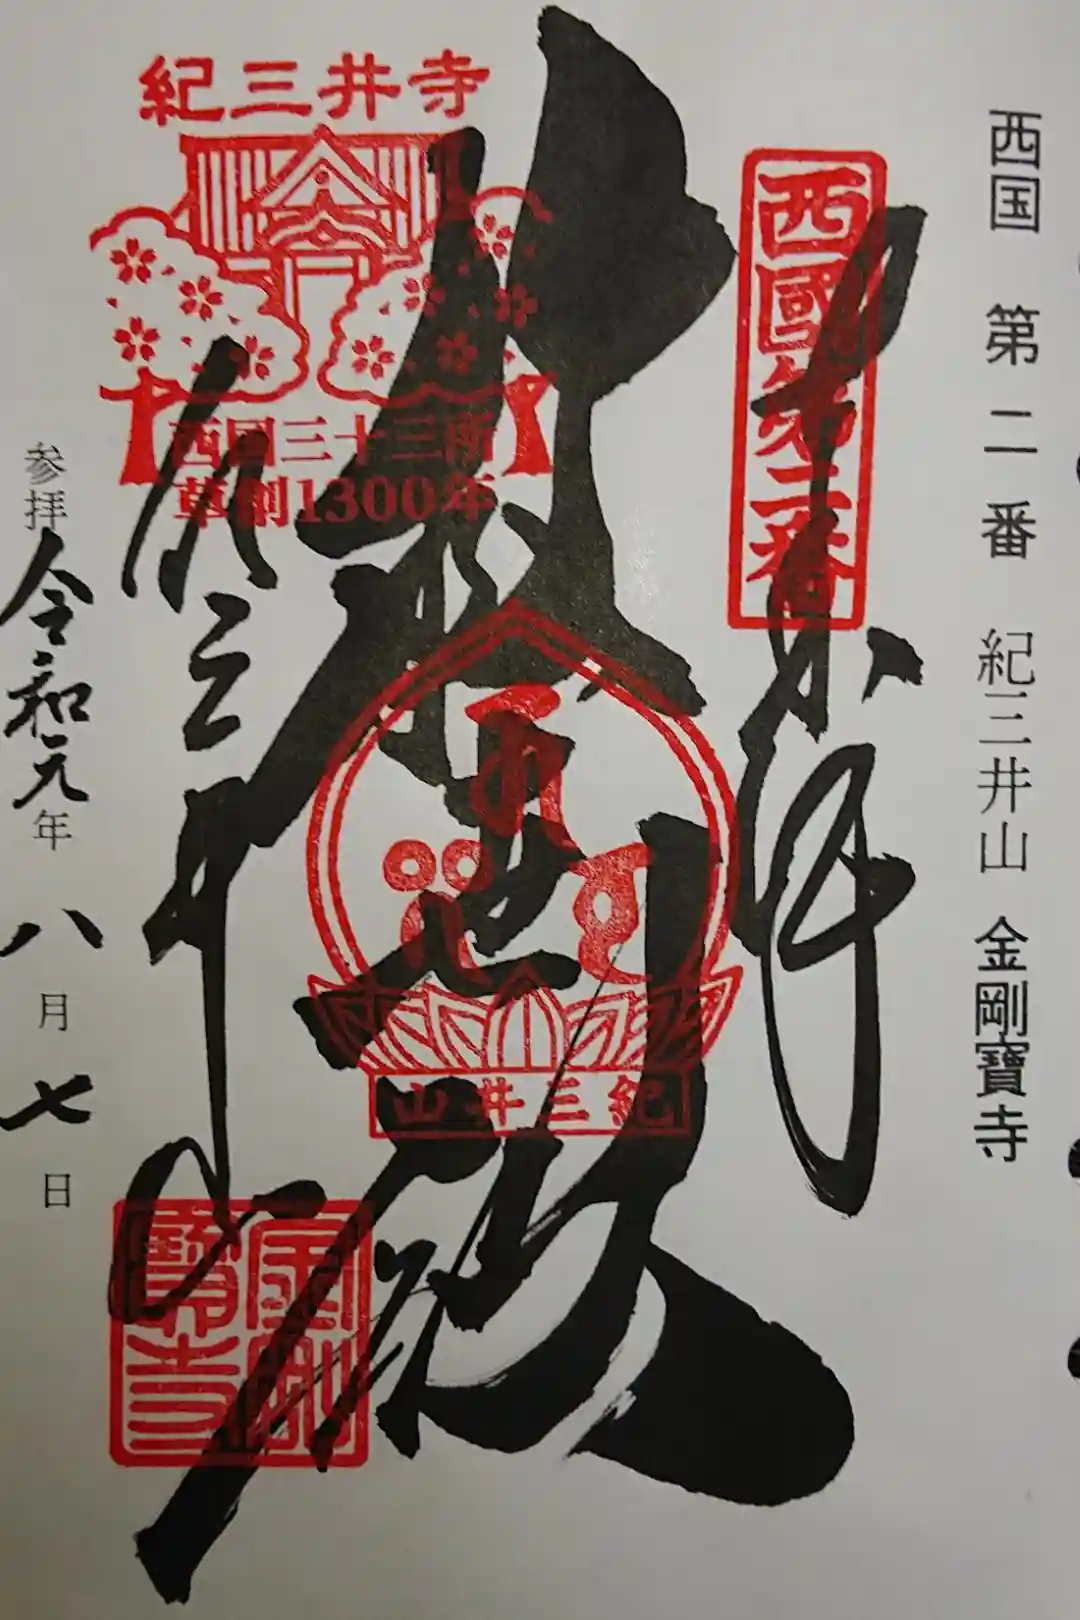 西国 第二番 紀三井山 金剛寶寺
西國第二番
奉拝
救世殿
紀三井寺
西国三十三所
草創1300年
紀三井山
紀三井寺
金剛
寶寺
参拝 令和元年 八月 七日